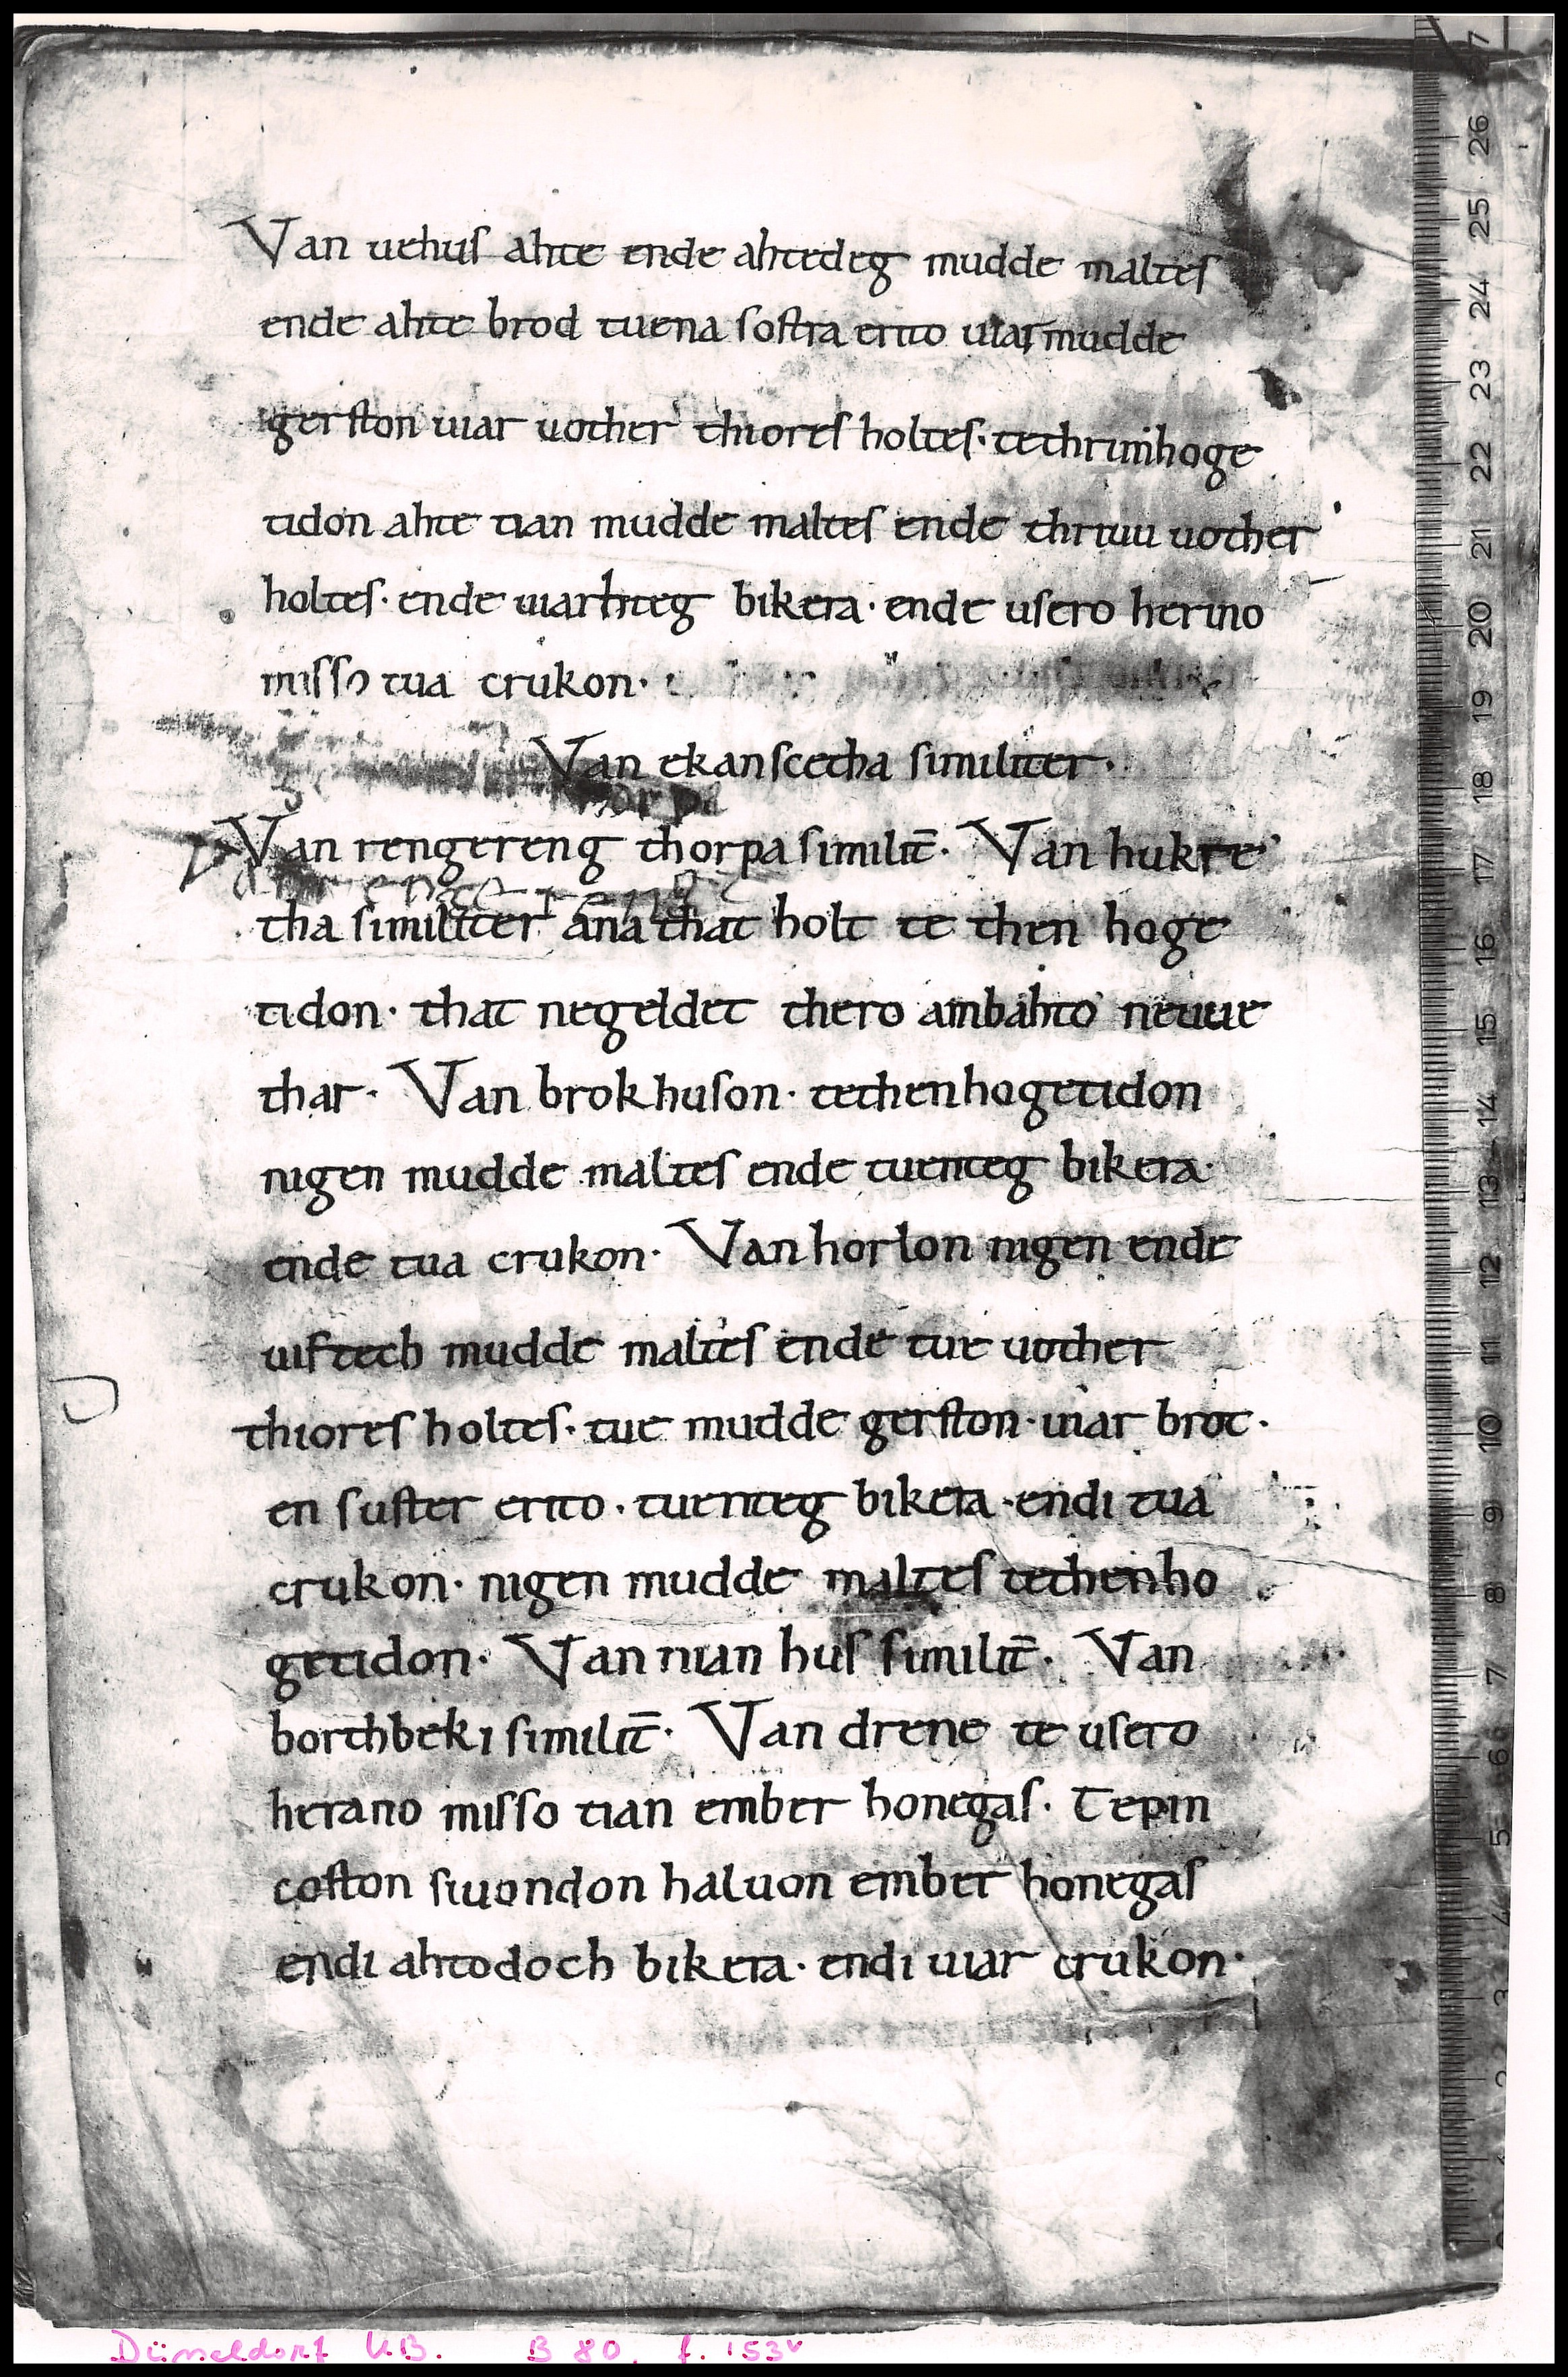 Van uehus ahte ende ahtedeg mudde maltes
ende ahte brod tuena sostra erito uiar mudde
gerston uiar uother thiores holtes· tethrimhoge
tidon ahte tian mudde maltes ende thriuu uother
holtes· ende uiarhteg bikera· ende usero herino
misso tua crukon·
Van ekanscetha similiter·
Van rengereng thorpa similit̄· Van hukre
tha similiter ana that holt te then hoge
tidon· that negeldet thero ambahto neuue
thar· Van brokhuson· tethenhogetidon
nigen mudde maltes ende tuenteg bikera·
ende tua crukon· Van horlon nigen ende
uiftech mudde maltes ende tue uother
thiores holtes· tue mudde gerston· uiar brot·
en suster erito· tuenteg bikera· endi tua
crukon· nigen mudde maltes tethenho
getidon· Van nian hus similit̄· Van
borthbeki similit̄· Van drene te usero
herano misso tian ember honegas· Tepin
coston siuondon haluon ember honegas
endi ahtodoch bikera· endi uiar crukon·
Düsseldorf UB. B 80. f. 153v
7
26
25
24
23
22
21
20
19
18
17
16
15
14
13
12
11
10
9
8
7
6
5
4
3
2
1